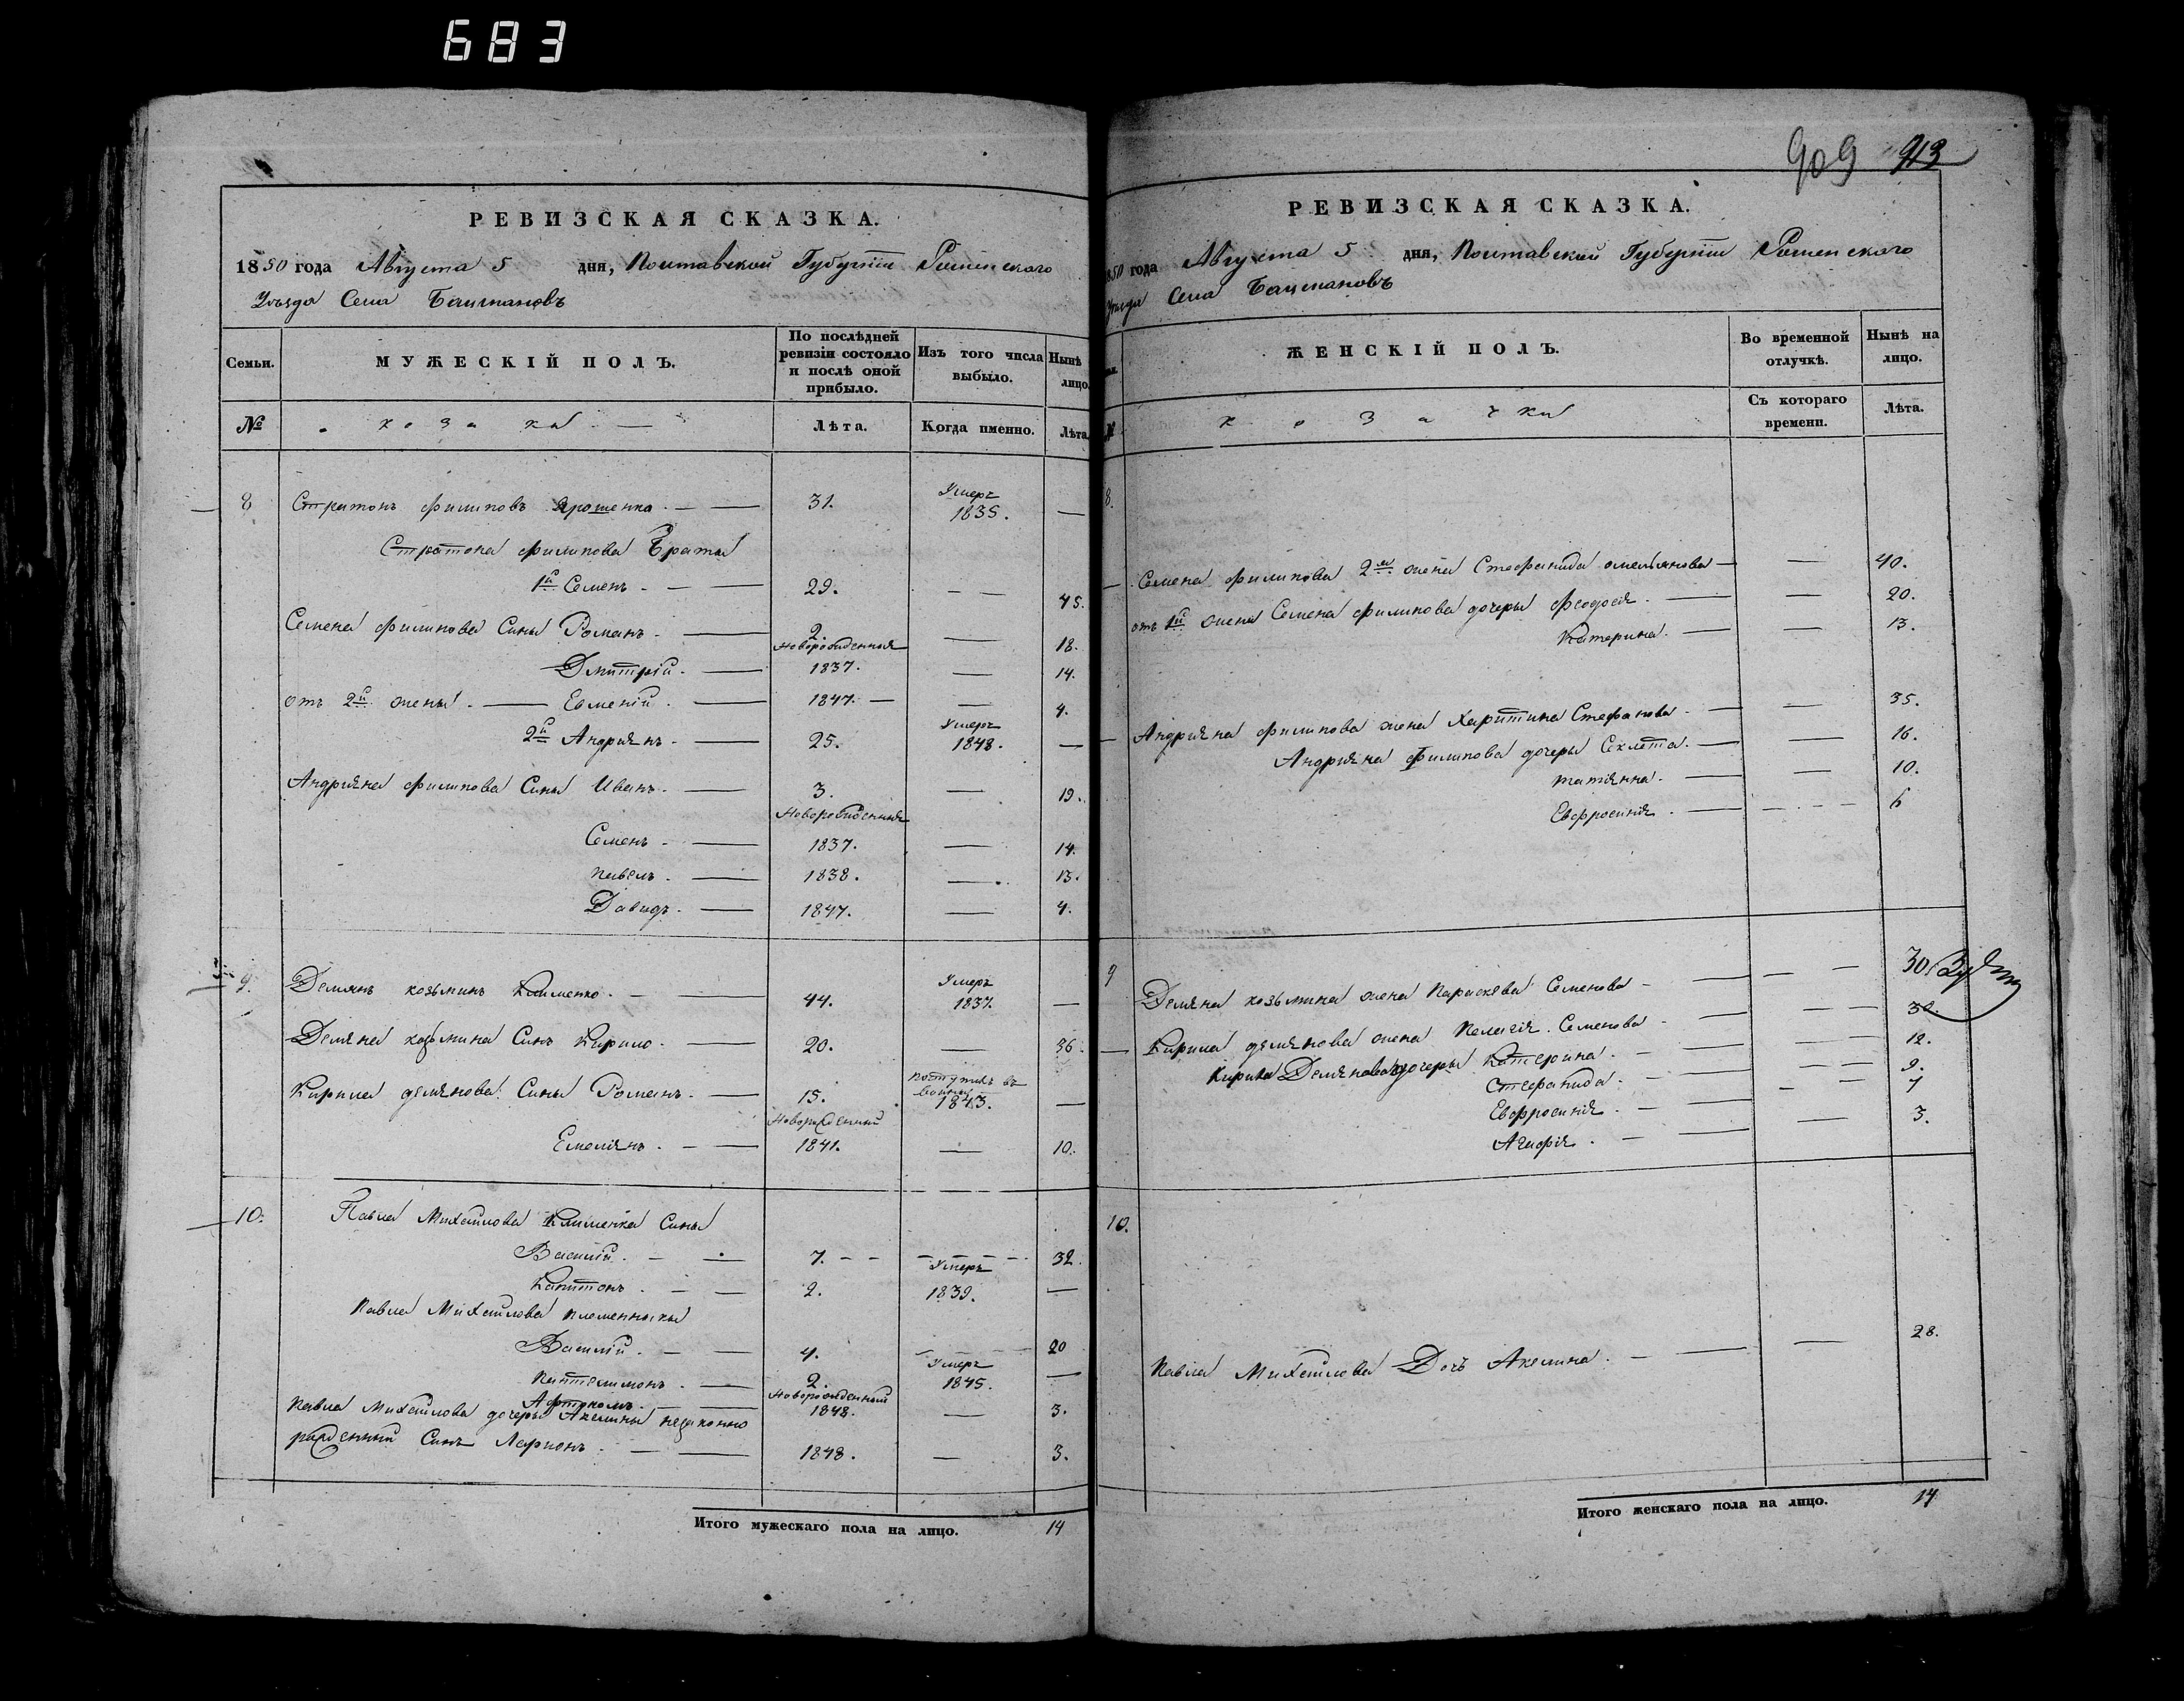 683
РЕВИЗСКАЯ СКАЗКА.
1850 года Августа 5 дня, Полтавской Губерніи Роменского
Уѣзда Села Бацмановъ
Семьи. МУЖЕСКІЙ ПОЛЪ. По послѣдней ревизіи состояло и послѣ оной прибыло. Изъ того числа выбыло. Нынѣ лицо.
№ козаки Лѣта. Когда именно. Лѣта.
8 Стратонъ Филиповъ Ярошенко. 31. Умеръ 1835. —
Стратона Филипова Браты
1й Семенъ. 29. — — 45.
Семена Филипова Сины Романъ. 2. — 18.
Новорожденныя
Дмитрій. 1837. — 14.
отъ 2й жены. Евменій. 1847. — 4.
2й Андріянъ. 25. Умеръ 1848. —
Андріяна Филипова Сины Иванъ. 3. — 19.
Новорожденныя
Семенъ. 1837. — 14.
Павелъ. 1838. — 13.
Давидъ. 1847. — 4.
9. Демянъ козьминъ Клименко. 44. Умеръ 1837. —
Демяна козьмина Синъ Кирило. 20. — 36.
Кирила демянова Сины Романъ. 15. 1843. —
Новорожденный
Емеліянъ. 1841. — 10.
10. Павла Михайлова Клименка Сины
Василій. 7. — — 32.
Капитонъ. 2. Умеръ 1839. —
Павла Михайлова племенныки
Василій. 4. — 20
Пантелимонъ. 2. Умеръ 1845. —
Новорожденный
Афтономъ. 1848. — 3.
Павла Михайлова дочеры Акелины незаконно
рожденный Синъ Ларионъ. 1848. — 3.
Итого мужескаго пола на лицо. 14
909 913
РЕВИЗСКАЯ СКАЗКА.
1850 года Августа 5 дня, Полтавской Губерніи Роменского
Уѣзда Села Бацмановъ
ЖЕНСКІЙ ПОЛЪ. Во временной отлучкѣ. Нынѣ на лицо.
№ козачки Съ котораго времени. Лѣта.
8.
Семена Филипова 2я жена Стефанида омельянова — 40.
отъ 1й жены Семена Филипова дочеры Феодосія. — 20.
Катерина. — 13.
Андріяна Филипова жена Харитина Стефанова. — 35.
Андріяна Филипова дочеры Секлета. — 16.
татіянна. — 10.
Евфросинія. — 6
9 Демяна козьмина жена Параскева Семенова — 30
Кирила демянова жена Пелагія Семенова — 30.
Кирила Демянова дочеры Катерина. — 12.
Стефанида. — 9.
Евфросинія. — 7
Агафія. — 3.
10.
Павла Михайлова Дочъ Акелина. — 28.
Итого женскаго пола на лицо. 14